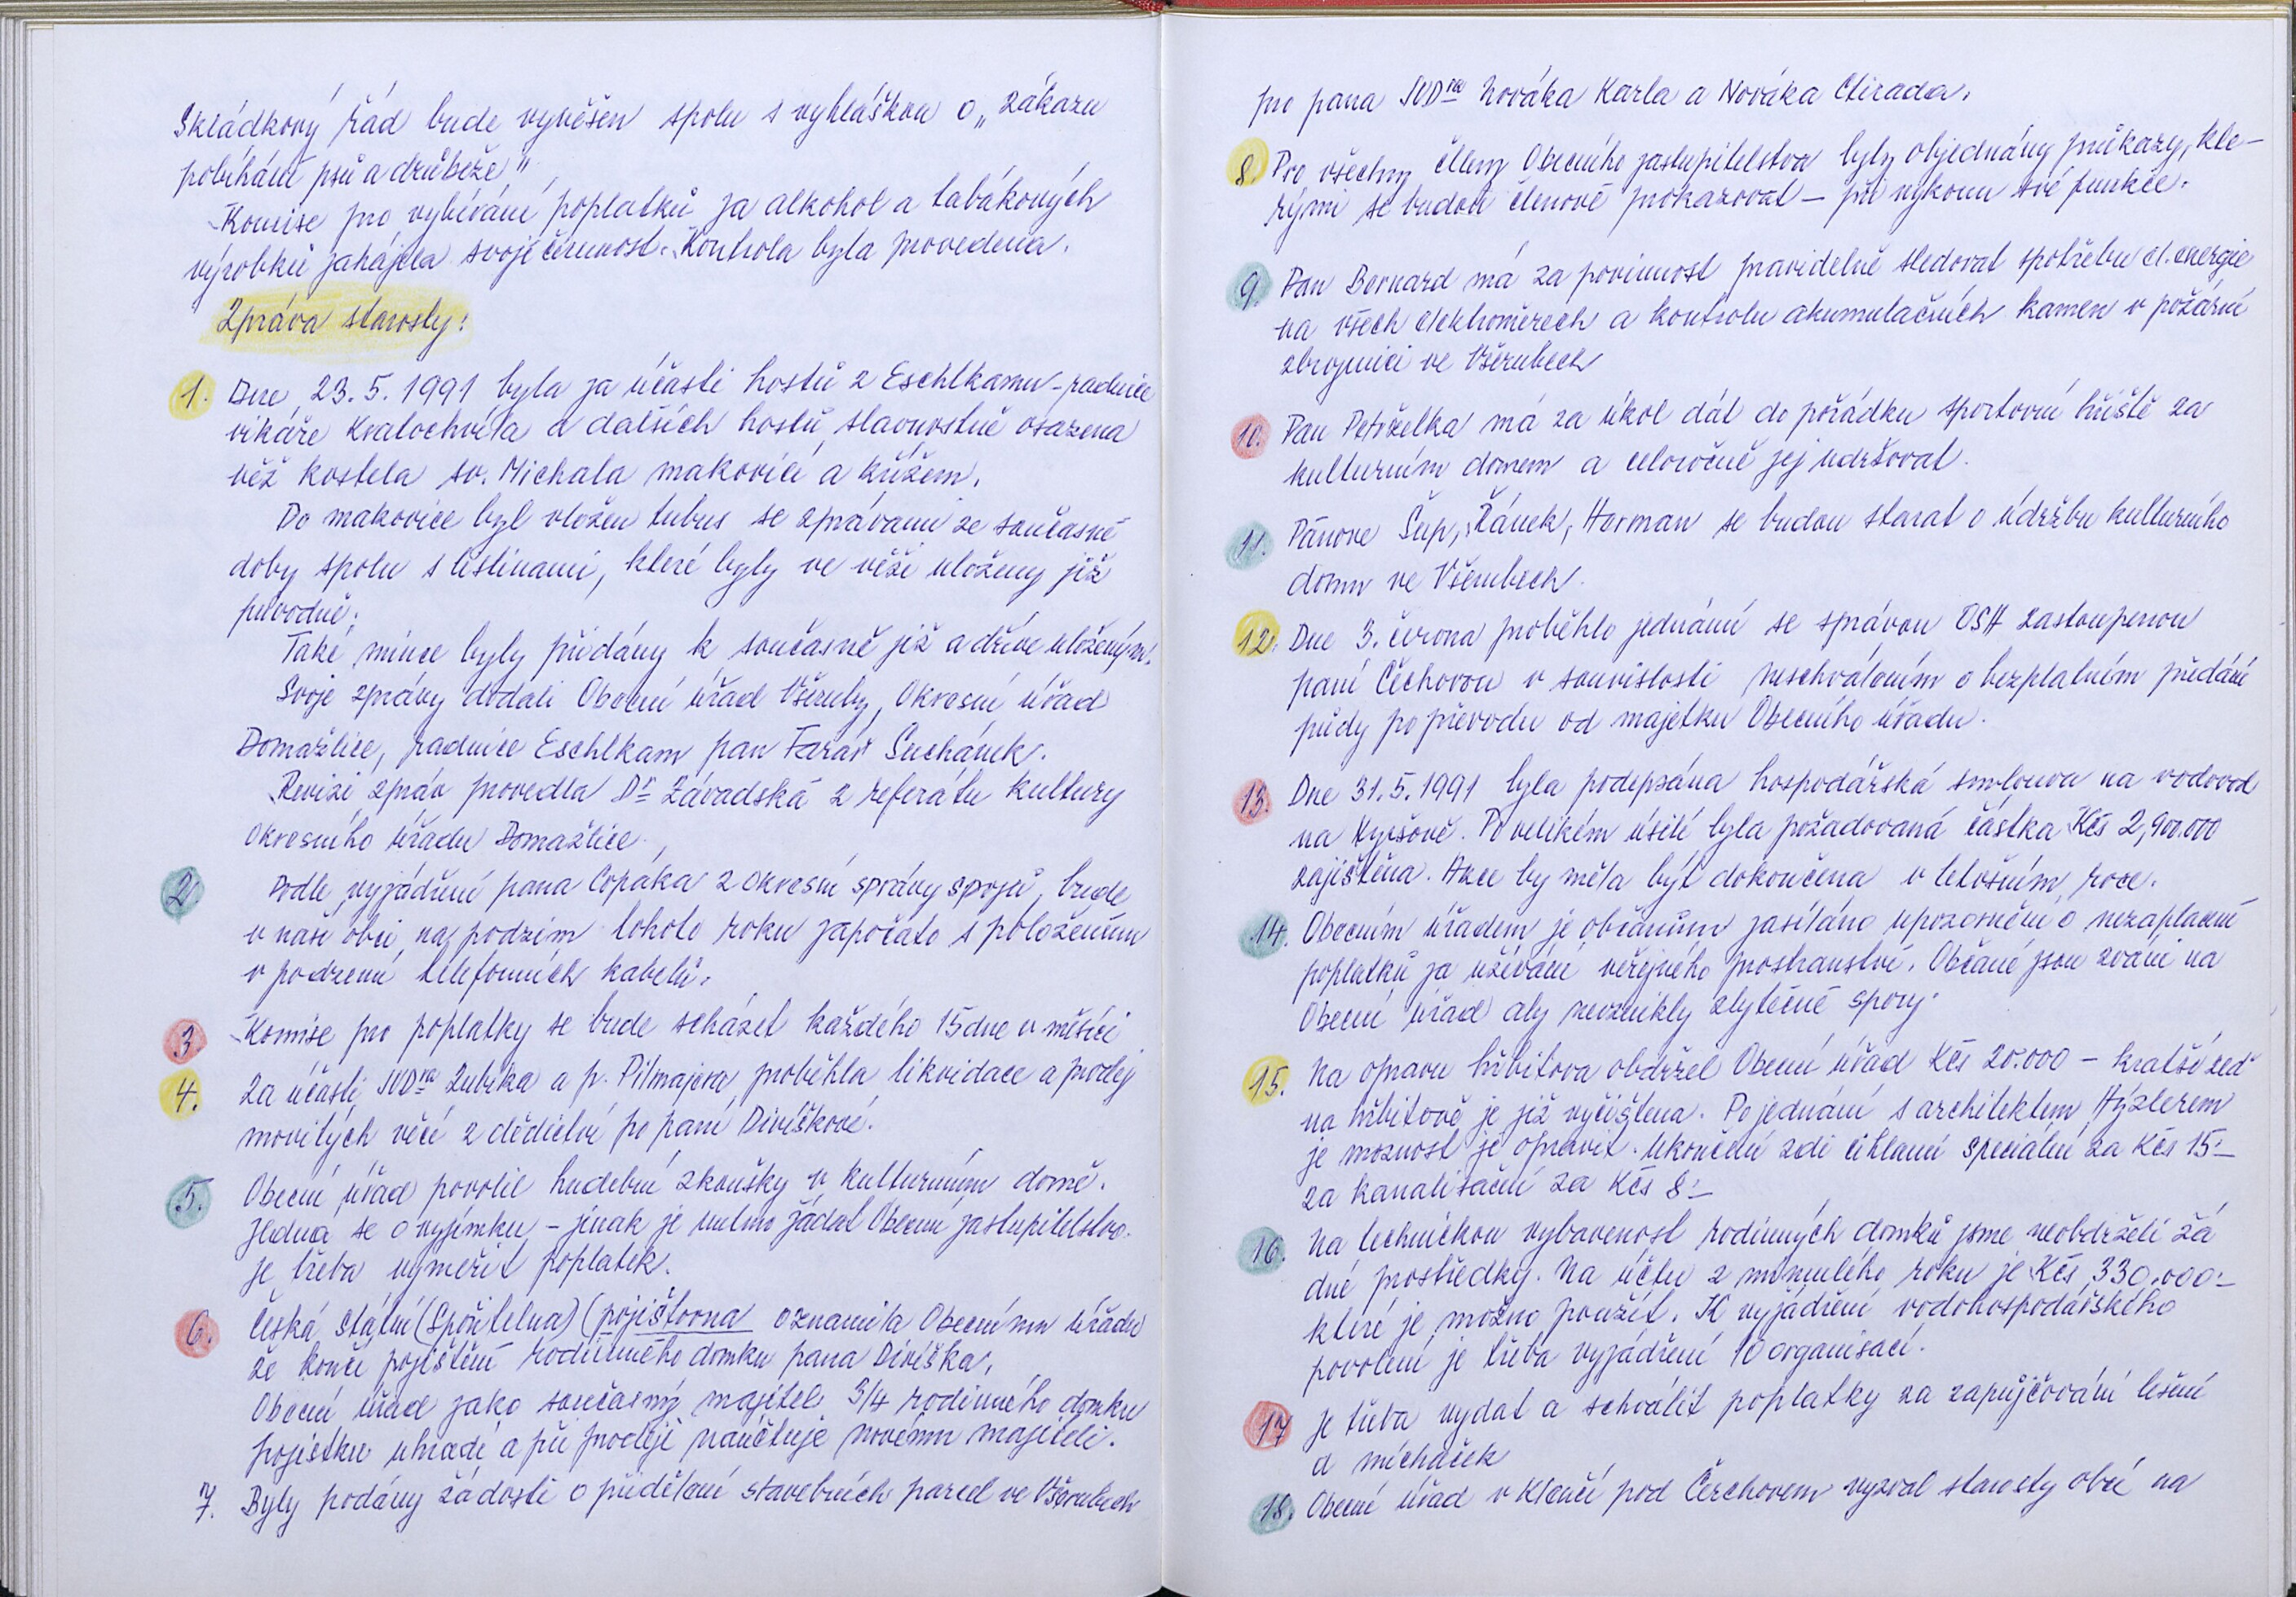 Skládkový řád bude vyvěšen spolu s vyhláškou o „Zákazu
pobíhání psů a drůbeže"
Komise pro vybívání poplatků za alkohol a tabákových
výrobků zahájila svoji činnost. Kontrola byla provedena.
Zpráva starosty:
1. Dne 23.5.1991 byla za účasti hostů z Eschlkamu - radnice
vikáře Kratochvíla a dalších hostů, slavnostně osazena
věž kostela sv. Michala makovicí a křížem.
Do makovice byl vložen tubus se zprávami ze současné
doby spolu s listinami, které byly ve věži uloženy již
původně.
Také mince byly přidány k současně již a dříve uloženým.
Svoje zprávy dodali Obecní úřad Všeruby, Okresní úřad
Domažlice, radnice Eschlkam pan Farář Suchánek.
Revizi zpráv provedla Dr Závadská z referátu kultury
Okresního úřadu Domažlice.
2. Podle vyjádření pana Copáka z Okresní správy spojů, bude
v naší obci na podzim tohoto roku započato s položením
v podzemí telefonních kabelů.
3. Komise pro poplatky se bude scházet každého 15 dne v měsíci
4. Za účasti JUDra Zubíka a p. Pilmajera proběhla likvidace a prodej
movitých věcí z dědictví po paní Diviškové.
5. Obecní úřad povolil hudební zkoušky v kulturním domě.
Jedná se o vyjímku - jinak je nutno žádat Obecní zastupitelstvo.
je třeba vyměřit poplatek.
6. Česká státní (Spořitelna) (pojišťovna oznámila Obecnímu úřadu
že končí pojištění rodinného domku pana Diviška.
Obecní úřad jako současný majitel 3/4 rodinného domku
pojistku uhradí a při prodeji naúčtuje novému majiteli.
7. Byly podány žádosti o přidělení stavebních parcel ve Všerubech
pro pana JUDra Nováka Karla a Nováka Ctirada.
8. Pro všechny členy Obecního zastupitelstva byly objednány průkazy, kte-
rými se budou členové prokazovat - při výkonu své funkce.
9. Pan Bernard má za povinnost pravidelně sledovat spotřebu el. energie
na všech elektroměrech a kontrolu akumulačních kamen v požární
zbrojnici ve Všerubech
10. Pan Petrželka má za úkol dát do pořádku sportovní hřiště za
kulturním domem a celoročně jej udržovat.
11. Pánove Šup, Žánek, Herman se budou starat o údržbu kulturního
domu ve Všerubech.
12. Dne 3. června proběhlo jednání se správou OSH zastoupenou
paní Čechovou v souvislosti neschválením o bezplatném předání
půdy po převodu od majetku Obecního úřadu.
13. Dne 31.5.1991 byla podepsána hospodářská smlouva na vodovod
na Hyršově. Po velikém úsilí byla požadovaná částka Kčs 2,900.000
zajištěna. Akce by měla být dokončena v letošním roce.
14. Obecním úřadem je občanům zasíláno upozornění o nezaplacení
poplatků za užívání veřejného prostranství. Občané jsou zváni na
Obecní úřad aby nevznikly zbytečné spory.
15. Na opravu hřbitova obdržel Obecní úřad Kčs 20.000 - kratší zeď
na hřbitově je již vyčištena. Po jednání s architektem Hyzlerem
je možnost je opravit. Ukončení zdi cihlami speciální za Kčs 15:-
za kanalisační za Kčs 8:-
16. Na technickou vybavenost rodinných domků jsme neobdrželi žá
dné prostředky. Na účtu z minulého roku je Kčs 330.000:-
které je možno použít. K vyjádření vodohospodářského
povolení je třeba vyjádření 10 organisací.
17 Je třeba vydat a schválit poplatky za zapůjčování lešení
a míchaček
18. Obecní úřad v Klenčí pod Čerchovem vyzval starosty obcí na